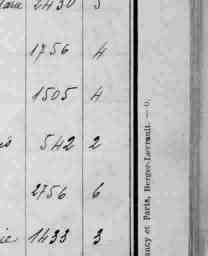 2430 5
1756 4
1505 4
542 2
2756 6
1433 3
ancy et Paris, Berger-Levrault. — O.